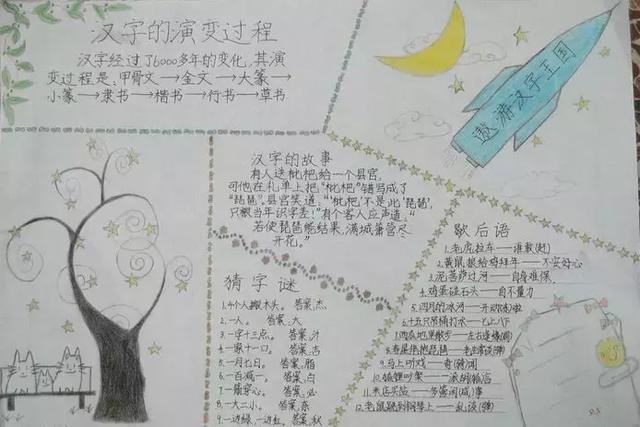 汉字的演变过程
汉字经过了6000多年的变化,其演
变过程是:甲骨文→金文→大篆→
小篆→隶书→楷书→行书→草书
遨游汉字王国
汉字的故事
有人送枇杷给一个县官,
可他在礼单上把“枇杷”错写成了
“琵琶”。县官笑道:“‘枇杷’不是此‘琵琶’,
只恨当年识字差!”有个客人应声道:“
若使琵琶能结果,满城箫管尽
开花。”
猜字谜
1.4个人搬木头。 答案,杰
2.一人。 答案,大
3.一字十三点。 答案,汁
4.一家十一口。 答案,吉
5.一月七日。 答案,脂
6.一百减一。 答案,白
7.一箭穿心。 答案,必
8.一大二小。 答案,奈
9.一边绿,一边红。 答案,秋
歇后语
1.老虎拉车——谁敢(赶)
2.黄鼠狼给鸡拜年——不安好心
3.泥菩萨过河——自身难保
4.鸡蛋碰石头——自不量力
5.四月的冰河——开动
6.十五只吊桶打水——七上八下
9.马上听戏——
12.老鼠跳到钢琴上——乱谈(弹)